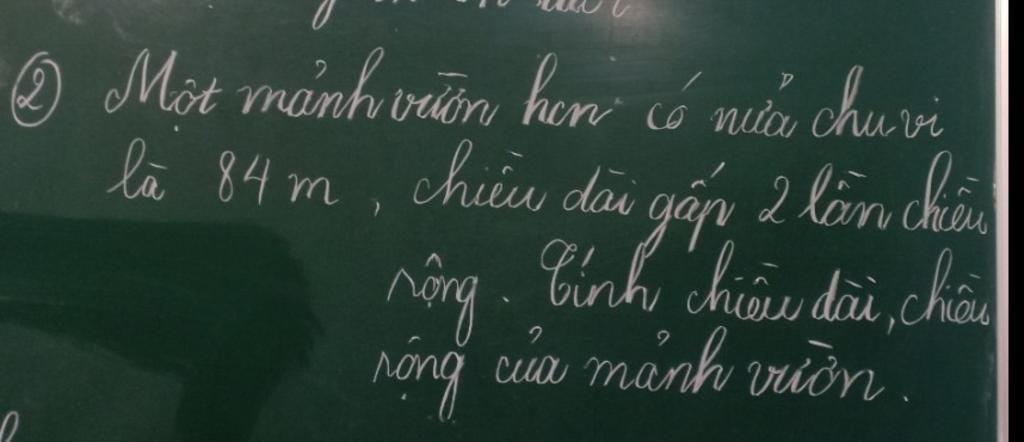 ② Một mảnh vườn hcn có nửa chu vi
là 84 m, chiều dài gấp 2 lần chiều
rộng. Tính chiều dài, chiều
rộng của mảnh vườn.